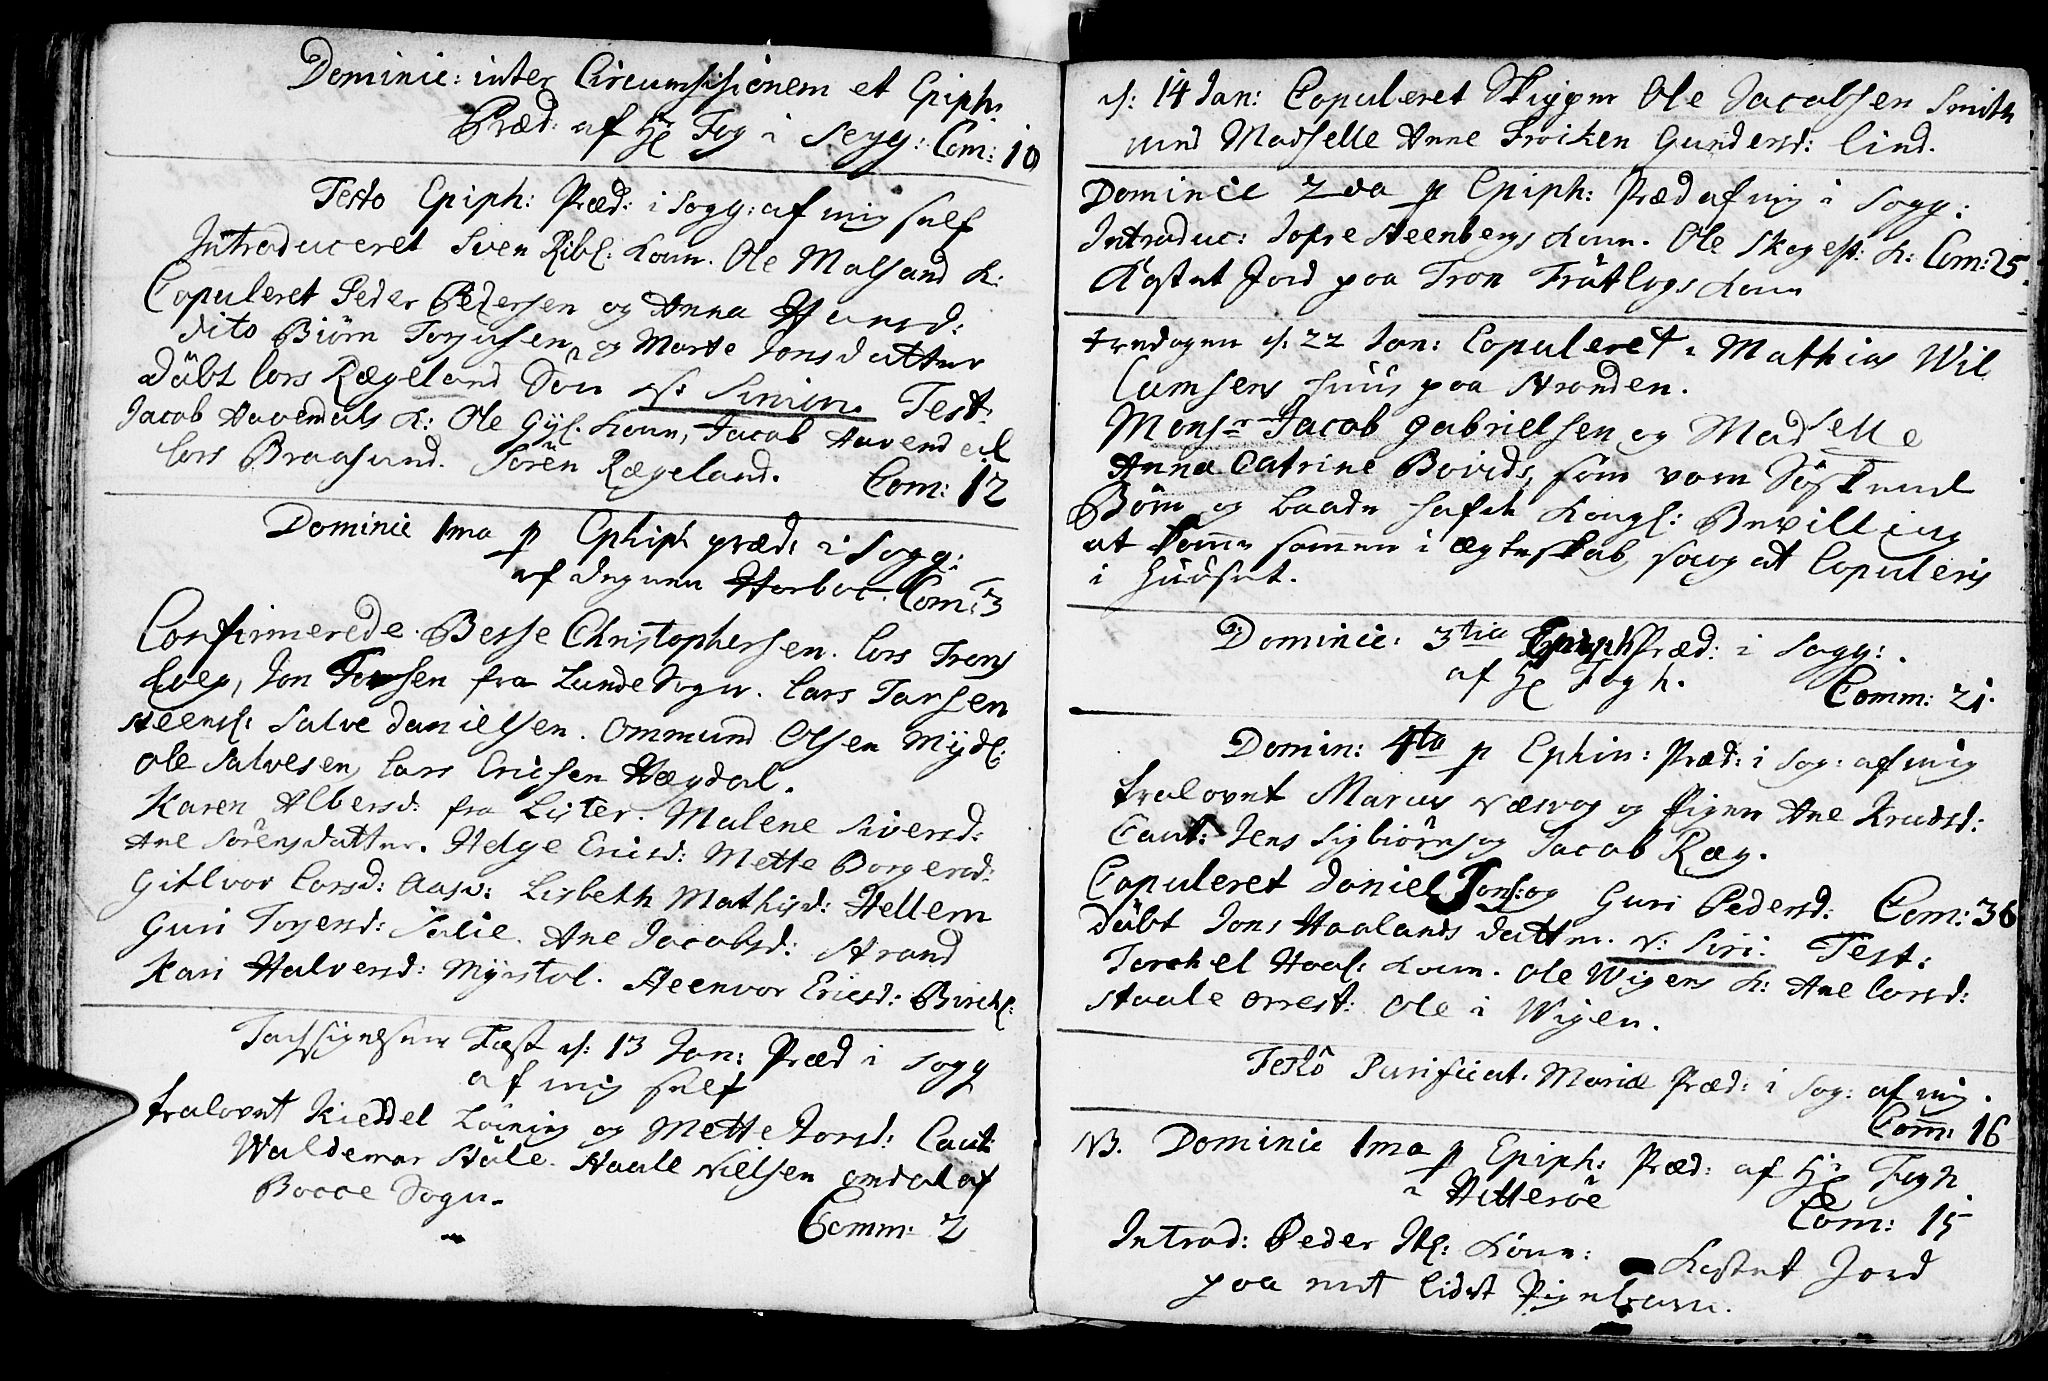 Dominic: inter Circumsisionem et Epiph:
Præd: af Hr Fog i Sogg: Com: 10
Festo Epiph: Præd: i Sogg: af mig self
Introduceret Sven Ribs: Konn. Ole Malsand K:
Copuleret Peder Pedersen og Anna Hansd:
dito Biörn Torjusen og Marte Jonsdatter
döbt Lars Rægeland Sön N: Simon. Test:
Jacob Aavendals K: Ole Gys: Konn, Jacob Aavendal
Lars Braasund. Sören Rægeland. Com: 12
Dominic 1ma p Ephiph præd: i Sogg:
af degnen Horboe. Com: 3
Confirmerede. Besse Christophersen. Lars Trons
Jon Tarsen fra Lunde Sogn. Lars Tarsen
Steens: Salve Danielsen. Ommund Olsen Myds:
Ole Salvesen, Lars Erichsen Hægdal.
Karen Albersd: fra Lister. Malene Siversd:
Ane Sörensdatter. Helge Ericsd: Mette Borgersd:
Gitlvor Larsd: Aasv: Lisbeth Mathisd: Hellem
Guri Torjersd: Salie. Ane Jacobsd: Strand
Kari Halversd: Myrstol. Steenvor Ericsd: Birchs:
Tachsigelsens Fæst d: 13 Jan: Præd i Sogg
af mig self
trolovet Kieddel Löining og Mette Jorsd: Caut:
Waldemar Stöle. Staale Nielsen omdal af
Bacce Sogn.
Comm: 2
d: 14 Jan: Copuleret Skipper Ole Jacobsen Smith
med Madselle Anne Froiken Gundersd: Lind.
Dominic 2da p Epiph: Præd af mig i Sogg:
Introduc: Jofre Steenbergs Konn. Ole Skagest: K: Com: 25.
Kastet Jord paa Tron Frötlogs Konn
tirsdagen d: 22 Jan: Copuleret i Mathias Wil
lumsens Huus paa Stranden.
Monsr Jacob Gabrielsen og Madselle
Anna Catrine Boirds, som vare Söskend
Börn og baade hafde Kongl: Bevilling
at komme sammen i ægteskab, saog at Copuleris
i Huuset.
Dominic: 3tia Epiph Præd: i Sogg:
af Hr Fogh. Comm: 21.
Domin: 4ta p Ephin: Præd: i Sog: af mig
trolovet Marcus Næsvog og Pigen Ane Knudsd:
Caut: Jens Sigbiörns og Jacob Ræg.
Copuleret Daniel Jons: og Guri Pedersd: Com: 36
döbt Jons Haalands datter. N: Siri. Test:
Torchel Haal: Konn. Ole Wigens K: Ane Larsd:
Staale Orrest: Ole i Wigen.
Festo Purificat: Mariæ Præd: i Sog: af mig.
Com: 16
NB. Dominic 1ma p Epiph: Præd: af Hr Fogh
i Hitteröe Com: 15
Introd: Peder Konn: Kastet Jord
paa et lidet Pigebarn.